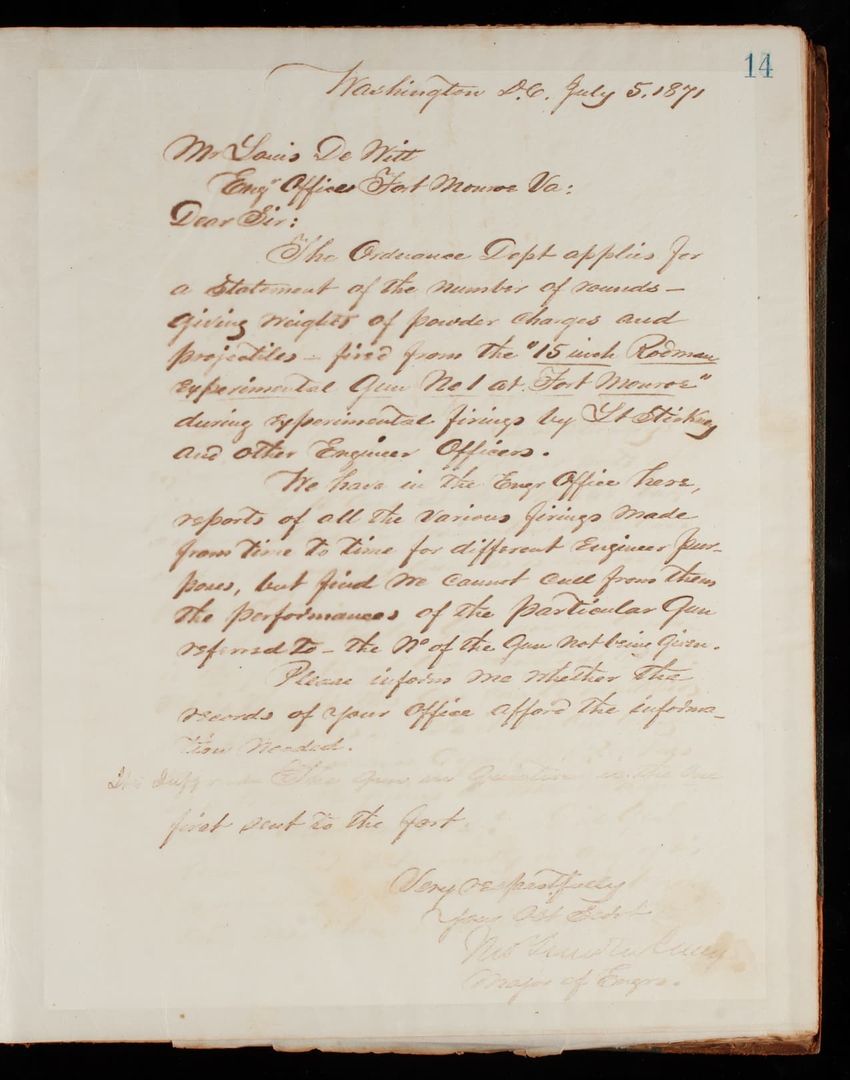 14
Washington D.C. July 5. 1871
Mr Louis De Witt
Engr Office Fort Monroe Va:
Dear Sir:
The Ordnance Dept applies for
a statement of the number of rounds —
giving weights of powder charges and
projectiles — fired from the "15 inch Rodman
experimental Gun No 1 at Fort Monroe"
during experimental firings by Lt Stickney
and other Engineer Officers.
We have in the Engr Office here,
reports of all the various firings made
from time to time for different Engineer pur-
poses, but find we cannot cull from them
the performances of the particular Gun
referred to — the No of the Gun not being given.
Please inform me whether the
records of your office afford the informa-
tion needed.
The Gun in Question is the one
first sent to the fort.
Very respectfully
Your Obt Servt
Major of Engrs.